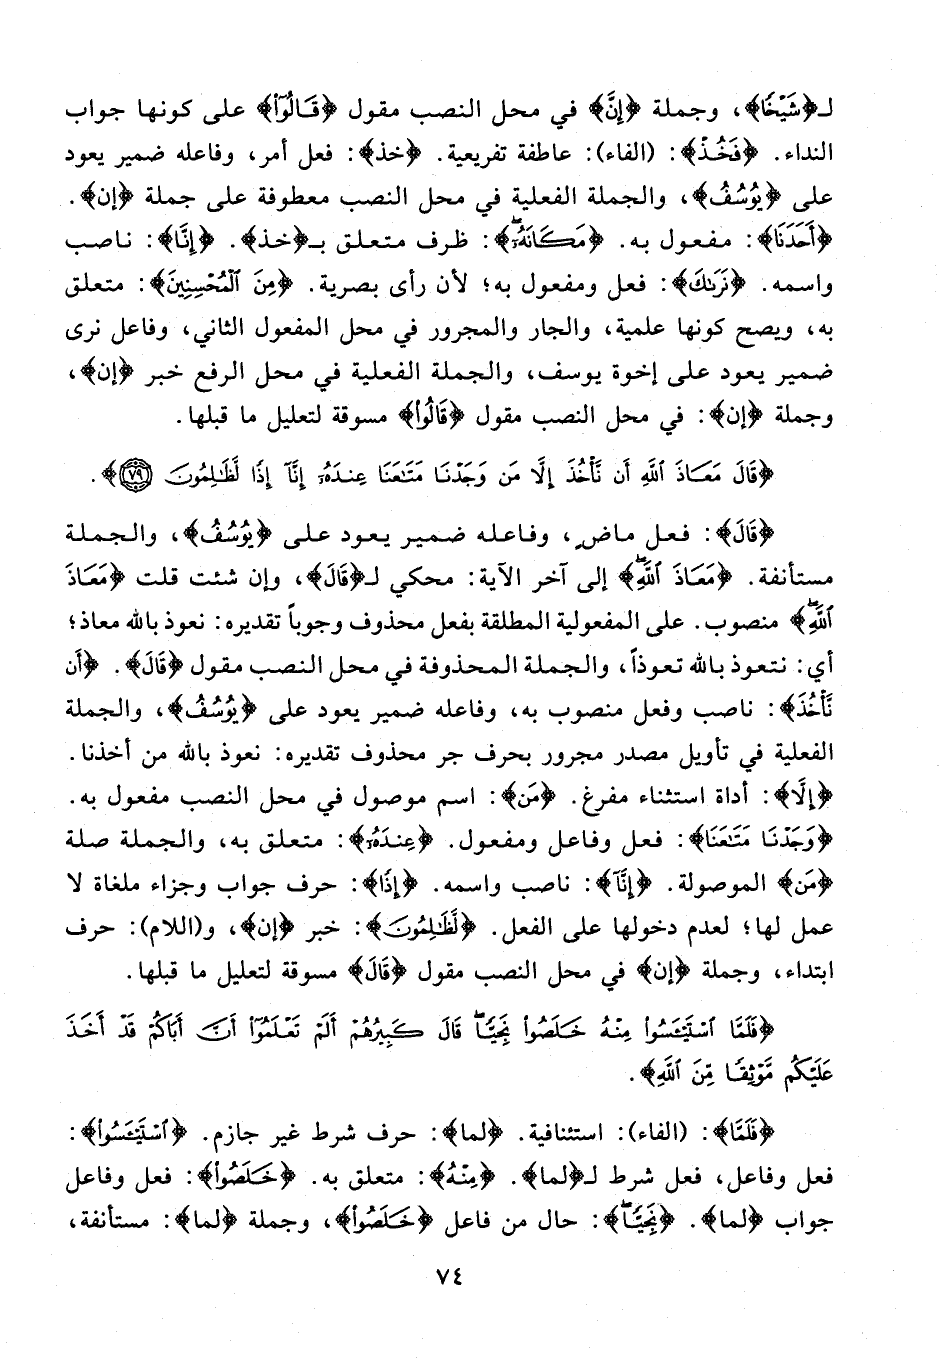 لـ﴿شَيْخًا﴾، وجملة ﴿إِنَّ﴾ في محل النصب مقول ﴿قَالُوٓا۟﴾ على كونها جواب
النداء. ﴿فَخُذْ﴾: (الفاء): عاطفة تفريعية. ﴿خذ﴾: فعل أمر، وفاعله ضمير يعود
على ﴿يُوسُفُ﴾، والجملة الفعلية في محل النصب معطوفة على جملة ﴿إن﴾.
﴿أَحَدَنَا﴾: مفعول به. ﴿مَكَانَهُۥٓ﴾: ظرف متعلق بـ﴿خذ﴾. ﴿إِنَّا﴾: ناصب
واسمه. ﴿نَرَىٰكَ﴾: فعل ومفعول به؛ لأن رأى بصرية. ﴿مِنَ ٱلْمُحْسِنِينَ﴾: متعلق
به، ويصح كونها علمية، والجار والمجرور في محل المفعول الثاني، وفاعل نرى
ضمير يعود على إخوة يوسف، والجملة الفعلية في محل الرفع خبر ﴿إن﴾،
وجملة ﴿إن﴾: في محل النصب مقول ﴿قَالُوا۟﴾ مسوقة لتعليل ما قبلها.
﴿قَالَ مَعَاذَ ٱللَّهِ أَن نَّأْخُذَ إِلَّا مَن وَجَدْنَا مَتَٰعَنَا عِندَهُۥٓ إِنَّآ إِذًا لَّظَٰلِمُونَ ٧٩﴾.
﴿قَالَ﴾: فعل ماض، وفاعله ضمير يعود على ﴿يُوسُفُ﴾، والجملة
مستأنفة. ﴿مَعَاذَ ٱللَّهِ﴾ إلى آخر الآية: محكي لـ﴿قَالَ﴾، وإن شئت قلت ﴿مَعَاذَ
ٱللَّهِ﴾ منصوب. على المفعولية المطلقة بفعل محذوف وجوباً تقديره: نعوذ بالله معاذ؛
أي: نتعوذ بالله تعوذاً، والجملة المحذوفة في محل النصب مقول ﴿قَالَ﴾. ﴿أَن
نَّأْخُذَ﴾: ناصب وفعل منصوب به، وفاعله ضمير يعود على ﴿يُوسُفُ﴾، والجملة
الفعلية في تأويل مصدر مجرور بحرف جر محذوف تقديره: نعوذ بالله من أخذنا.
﴿إِلَّا﴾: أداة استثناء مفرغ. ﴿مَن﴾: اسم موصول في محل النصب مفعول به.
﴿وَجَدْنَا مَتَٰعَنَا﴾: فعل وفاعل ومفعول. ﴿عِندَهُۥ﴾: متعلق به، والجملة صلة
﴿مَن﴾ الموصولة. ﴿إِنَّآ﴾: ناصب واسمه. ﴿إِذًا﴾: حرف جواب وجزاء ملغاة لا
عمل لها؛ لعدم دخولها على الفعل. ﴿لَّظَٰلِمُونَ﴾: خبر ﴿إن﴾، و(اللام): حرف
ابتداء، وجملة ﴿إن﴾ في محل النصب مقول ﴿قَالَ﴾ مسوقة لتعليل ما قبلها.
﴿فَلَمَّا ٱسْتَيْـَٔسُوا۟ مِنْهُ خَلَصُوا۟ نَجِيًّا قَالَ كَبِيرُهُمْ أَلَمْ تَعْلَمُوٓا۟ أَنَّ أَبَاكُمْ قَدْ أَخَذَ
عَلَيْكُم مَّوْثِقًا مِّنَ ٱللَّهِ﴾.
﴿فَلَمَّا﴾: (الفاء): استئنافية. ﴿لما﴾: حرف شرط غير جازم. ﴿ٱسْتَيْـَٔسُوا۟﴾:
فعل وفاعل، فعل شرط لـ﴿لما﴾. ﴿مِنْهُ﴾: متعلق به. ﴿خَلَصُوا۟﴾: فعل وفاعل
جواب ﴿لما﴾. ﴿نَجِيًّا﴾: حال من فاعل ﴿خَلَصُوا۟﴾، وجملة ﴿لما﴾: مستأنفة،
٧٤